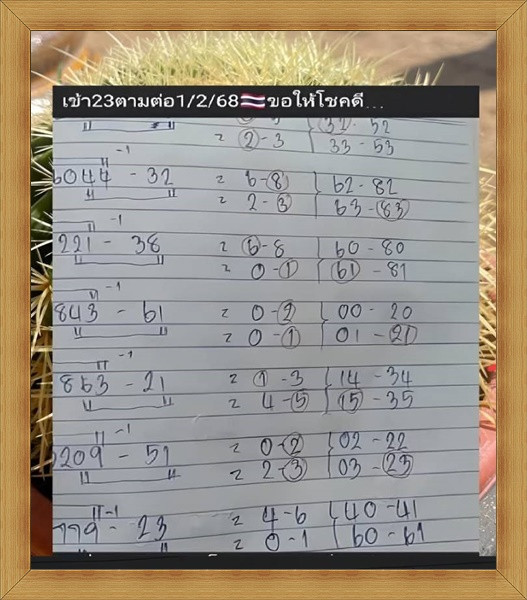 เข้า23ตามต่อ1/2/68🇹🇭ขอให้โชคดี...
32 - 52
= 2 - 3 33 - 53
-1
6044 - 32 = 6 - 8 62 - 82
= 2 - 3 63 - 83
-1
221 - 38 = 6 - 8 60 - 80
= 0 - 1 61 - 81
-1
843 - 61 = 0 - 2 00 - 20
= 0 - 1 01 - 21
-1
863 - 21 = 1 - 3 14 - 34
= 4 - 5 15 - 35
-1
209 - 51 = 0 - 2 02 - 22
= 2 - 3 03 - 23
-1
779 - 23 = 4 - 6 40 - 41
= 0 - 1 60 - 61